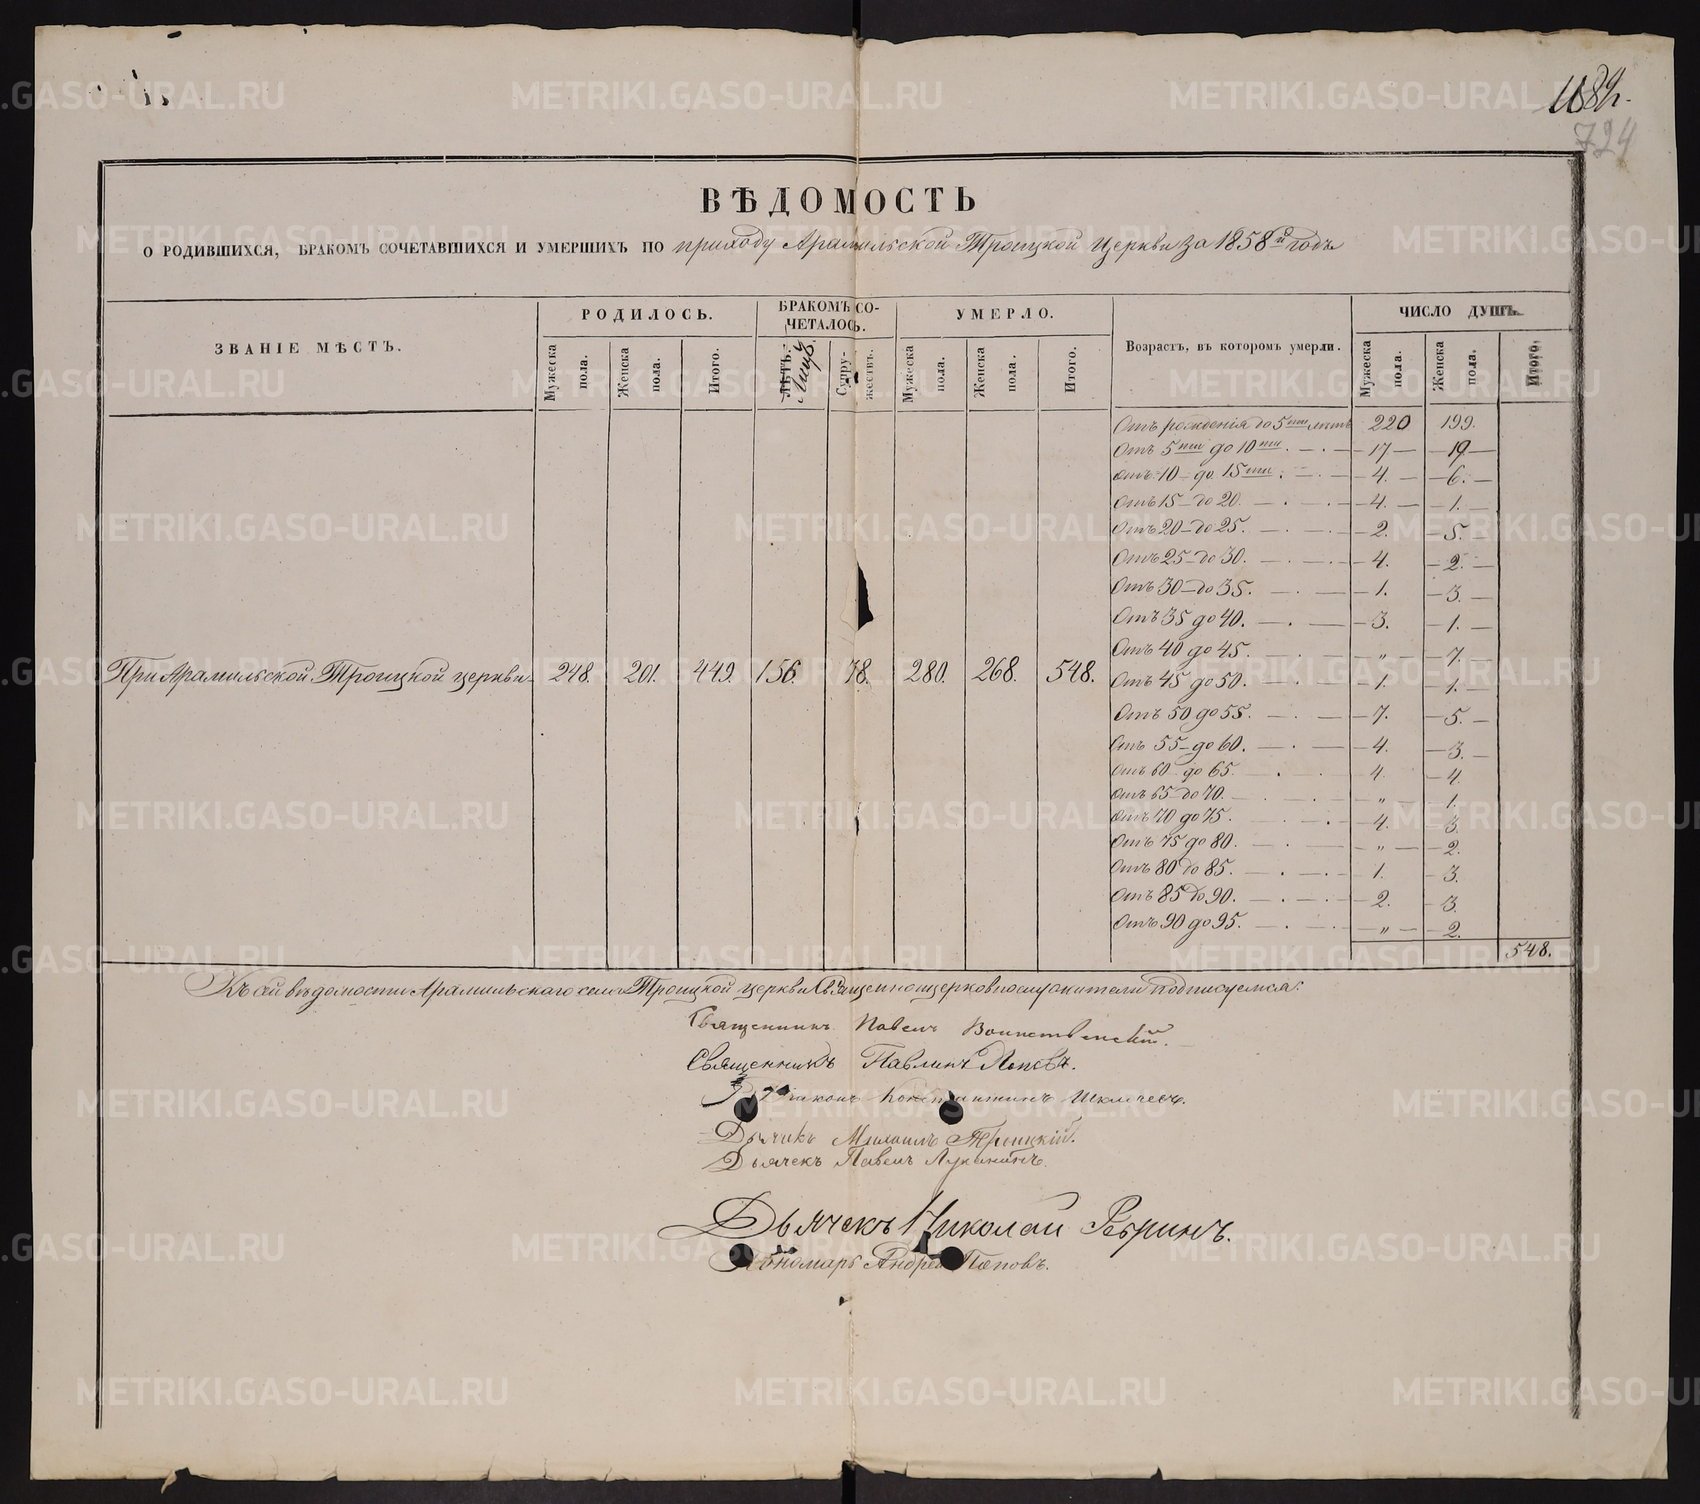 1889.
724
ВѢДОМОСТЬ
О РОДИВШИХСЯ, БРАКОМЪ СОЧЕТАВШИХСЯ И УМЕРШИХЪ ПО приходу Арамильской Троицкой церкви за 1858й годъ
ЗВАНІЕ МѢСТЪ.
РОДИЛОСЬ.
Мужеска пола.
Женска пола.
Итого.
БРАКОМЪ СО-
ЧЕТАЛОСЬ.
Лицъ.
Супру-
жествъ.
УМЕРЛО.
Мужеска пола.
Женска пола.
Итого.
Возрастъ, въ которомъ умерли.
ЧИСЛО ДУШЪ.
Мужеска пола.
Женска пола.
Итого.
При Арамильской Троицкой церкви 248. 201. 449. 156. 78. 280. 268. 548.
Отъ рожденія до 5ти лѣтъ 220 199.
Отъ 5ти до 10ти. — 17 — 19 —
Отъ 10 — до 15ти. — 4. — 6. —
Отъ 15 — до 20. — 4. — 1. —
Отъ 20 — до 25. — 2. — 5. —
Отъ 25 — до 30. — 4. — 2. —
Отъ 30 — до 35. — 1. — 3. —
Отъ 35 до 40. — 3. — 1. —
Отъ 40 до 45. — „ — 7. —
Отъ 45 до 50. — 1. — 1. —
Отъ 50 до 55. — 7. — 5. —
Отъ 55 — до 60. — 4. — 3. —
Отъ 60 до 65. 4. — 4.
Отъ 65 — до 70. — „ — 1.
Отъ 70 до 75. — 4. — 3.
Отъ 75 до 80. — „ — 2.
Отъ 80 до 85. — 1. — 3.
Отъ 85 до 90. — 2. — 3.
Отъ 90 до 95. — „ — 2.
548.
Къ сей вѣдомости Арамильскаго села Троицкой церкви Священноцерковнослужители подписуемся:
Священникъ Павелъ Воинственскій.
Священникъ Павлинъ Поповъ.
Діаконъ Константинъ
Дьячекъ Михаилъ Троицкій.
Дьячекъ Павелъ Луканинъ.
Дьячекъ Николай Ребринъ.
Пономарь Андрей Поповъ.
METRIKI.GASO-URAL.RU